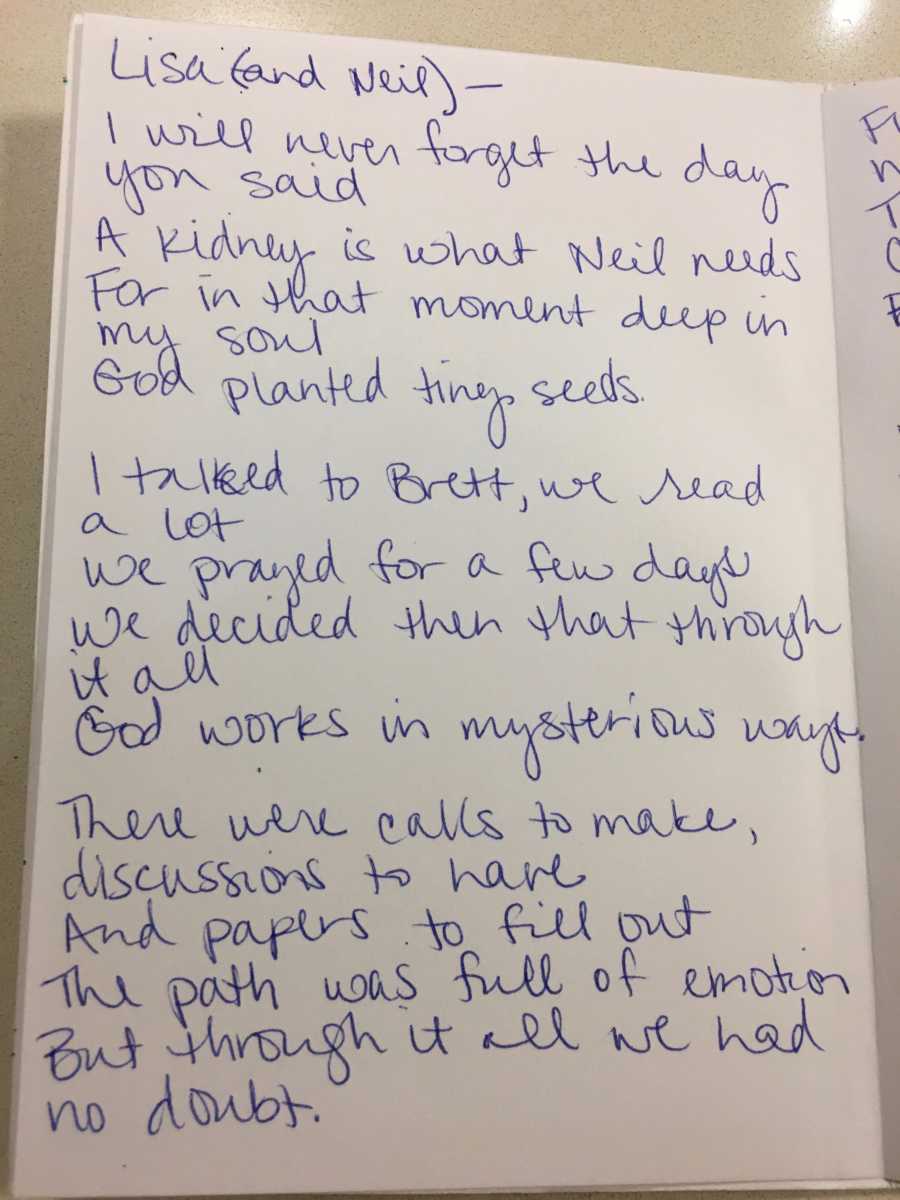 Lisa (and Neil) —
I will never forget the day
you said
A kidney is what Neil needs
For in that moment deep in
my soul
God planted tiny seeds.
I talked to Brett, we read
a lot
We prayed for a few days
We decided then that through
it all
God works in mysterious ways.
There were calls to make,
discussions to have
And papers to fill out
The path was full of emotion
But through it all we had
no doubt.